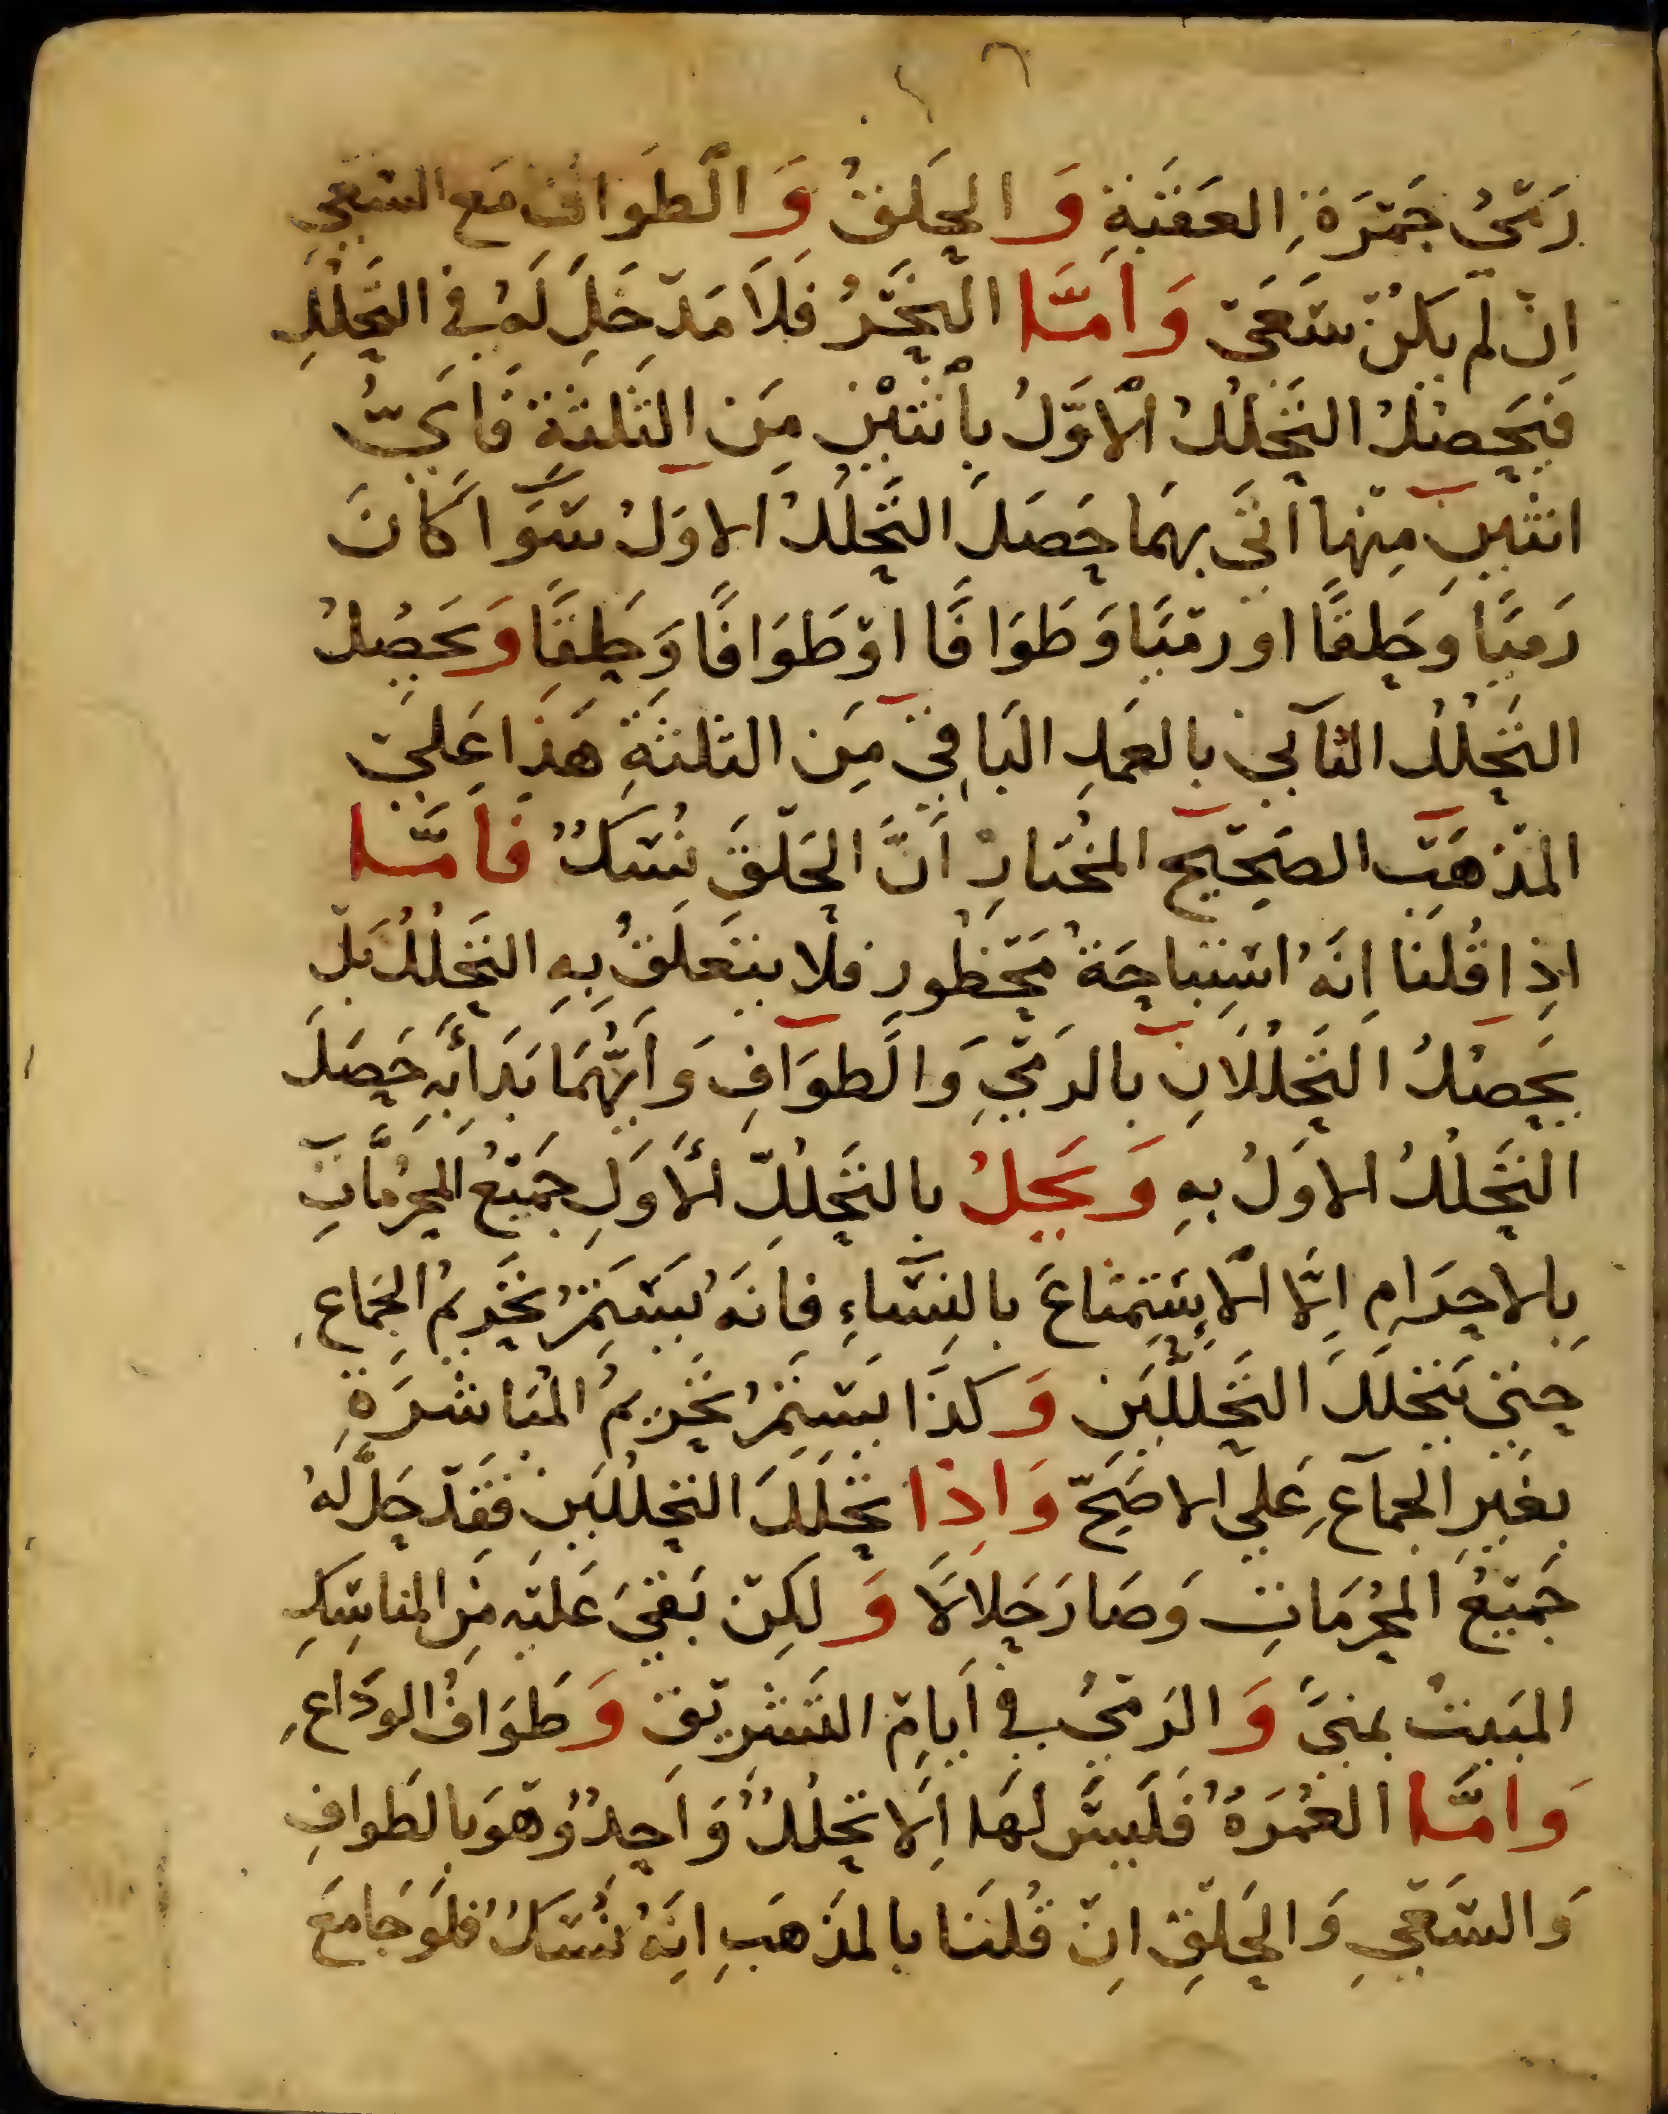 رَمْيُ جَمْرَةِ العَقَبَةِ وَالحَلقُ وَالطَوَافُ مَع السَعْيِ
اِنْ لم يَكُنْ سَعَىْ وَاَمَّا النَحْرُ فَلَا مَدْخَلَ لَهُ في التَحَلُّلِ
فَيَحصُلُ التَحَلُلُ الْاَوَّلُ بِاثْنَتَيْنِ مِنَ الثَلثَة فَاَيُّ
اثنَتَينِ مِنْهَا اَتَى بِهَمَا حَصَلَ التَحَلُلُ الاوَلُ سَوَّا كَانَ
رَميًا وَحَلِقًا او رمْيًا وَطَوَافًا اوْ طَوَافًا وَحَلِقًا وَيَحصُلُ
التَحَلُلُ الثاني بالعَمَلِ البَاقِيْ مِنَ الثلثَةِ هَذَا عَلىْ
المَذهَبِ الصَحِيْحِ المُختَارِ اَنَّ الحَلْقَ نُسُكٌ فَاَمَّا
اِذا قُلنَا اِنَهُ استِبَاحَةُ مَحْظُورٍ فلا يتَعَلَقُ بِهِ التَحَلُلُ بَلْ
يَحصُلُ التَحَلُلَانِ بالرَمْيِ وَالطوَافِ وَاَيُّهُمَا بَدَأَ بِهِ حَصَلَ
التَحَلُلُ الاوَلُ بِهِ وَيَحِلُ بالتَحَلُلِ الْأَوَلِ جَمِيْعُ المحَرَّمَاتِ
بِالاحرَامِ اِلَّا الْاِسْتِمتَاعَ بالنِسَاءِ فَانَهُ يَسْتَمِرُ تَحْرِيمُ الجِمَاعِ
حتى يَتَحَلَلَ التَحَلُّلَينِ وَكَذَا يَسْتَمِرُ تَحْرِيمُ المُبَاشَرَةِ
بغَيرِ الجمَاعِ عَلي الاصَحّ وَاِذَا تَحَلَلَ التحلُلَينِ فقَدْ حَلَّ لَهُ
جَمِيْعُ المُحَرمَاتِ وَصَارَ حَلَالًا وَلكِنْ بَقيَ عَليْهِ مِنَ المنَاسِكِ
المَبيتُ بمِنىً وَالرَمْيُ في اَيَامِ التَشْرِيْقِ وَطَوَافُ الوَدَاعِ
وَاَمَّا العُمْرَةُ فَلَيسَ لهَا اِلَا تحَلُلٌ وَاحِدٌ وَهْوَ بالطَوافِ
وَالسَعْيِ وَالحَلْقِ اِنْ قُلنَا بالمَذهَبِ اِنَهُ نُسُكٌ فلَوْ جَامَعَ